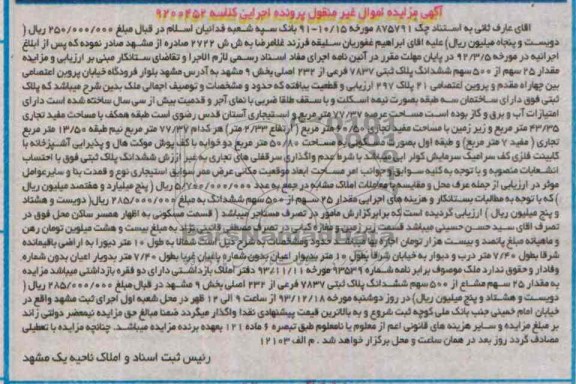 آگهی مزایده اموال غیر منقول پرونده اجرایی کلاسه ۹۲۰۰۴۵۲
آقای عارف ثانی به استناد چک ۸۷۵۷۹۱ مورخه ۹۱-۱۰/۱۵ بانک سپه شعبه فدائیان اسلام در قبال مبلغ ۲۵۰/۰۰۰/۰۰۰ ریال (
دویست و پنجاه میلیون ریال) علیه آقای ابراهیم غفوریان سلیقه فرزند غلامرضا به ش ش ۲۷۲۲ صادره از مشهد صادر نموده که پس از ابلاغ
اجرائیه در مورخه ۹۲/۳/۵ در پایان مهلت مقرر در آئین نامه اجرای مفاد اسناد رسمی لازم الاجرا و تقاضای ستانکار مبنی بر ارزیابی و مزایده
مقدار ۲۵ سهم از ۵۰۰ سهم ششدانگ پلاک ثبتی ۷۸۳۷ فرعی از ۲۳۲ اصلی بخش ۹ مشهد به آدرس مشهد بلوار فرودگاه خیابان پروین اعتصامی
بین چهاراه مقدم و پروین اعتصامی ۲۱ پلاک ۲۹۷ ارزیابی و قطعیت بیافته که حدود و مشخصات و توصیف اجمالی ملک بدین شرح میباشد که پلاک
ثبتی فوق دارای ساختمان سه طبقه بصورت نیمه اسکلت و با سقف طاقا ضربی با نمای آجر و قدمیت بیش از سی سال ساخته شده است دارای
امتیازات آب و برق و گاز بوده است مساحت عرصه ۷۷/۷۰ متر مربع و استیجاری آستان قدس رضوی است طبقه همکف با مساحت مفید تجاری
۴۳/۳۵ متر مربع و زیر زمین با مساحت مفید تجاری متر مربع (ارتفاع ۲/۳۳ متر) هر کدام ۷۷/۳۷ متر مربع نیم طبقه ۱۳/۵۰ متر مربع
تجاری ( مفید ۷ متر مربع) و طبقه اول بصورت مساحت ۵۰/۸۰ متر مربع دو خوابه با کف پوش موکت هال و پذیرایی آشپزخانه با
کابینت فلزی کف سرامیک سرمایش کولر آبی میباشد با شرط عدم واگذاری سرقفلی های تجاری به غیر ارزش ششدانگ پلاک ثبتی فوق با احتساب
انشعابات منصوبه و با توجه به کلیه سوابق و جوانب امر مساحت ابعاد موقعیت مکانی عرض ممر سوابق استیجاری نوع و قدمت بنا و سایر عوامل
موثر در ارزیابی از جمله عرف محل و مقایسه با معاملات املاک مشابه در جمع به عدد ۵/۷۰۰/۰۰۰/۰۰۰ ریال ( پنج میلیارد و هفتصد میلیون ریال
) که با توجه به مطالبات بستانکار و هزینه های اجرایی مقدار ۲۵ سهم از ۵۰۰ سهم ششدانگ به مبلغ ۲۸۵/۰۰۰/۰۰۰ ریال( دویست و هشتاد
و پنج میلیون ریال ) ارزیابی گردیده است که برابر گزارش مامور در تصرف مستاجر میباشد ( قسمت مسکونی به اظهار همسر ساکن محل فوق در
تصرف آقای سید حسن حسینی میباشد قسمت زیر زمین و مغازه کبابی در تصرف مصطفی نژاد به مبلغ بیست و هشت میلیون تومان رهن
و ماهیانه مبلغ پانصد و بیست هزار تومان اجاره حدود ومشخصات به شرح ذیل است شمالا به طول ۱۰ متر دیورا به اراضی باقیمانده
شرقا بطول ۷/۴۰ متر درب و دیوار به خیابان شرقا بطول ۱۰ متر بدیوار اعیان بدون شماره پائیان غربا بطول ۷/۴۰ متر بدیور اعیان بدون شماره
وفادار و حقوق ندارد ملک موصوف برابر نامه شماره ۹۳۵۳۹ مورخه ۹۳/۱۱/۱۱ دفتر املاک بازداشتی دارای دو فقره بازداشتی میباشد مزایده
به مقدار ۲۵ سهم مشاع از ۵۰۰ سهم ششدانگ پلاک ثبتی ۷۸۳۷ فرعی از ۲۳۲ اصلی بخش ۹ مشهد در قبال مبلغ ۲۸۵/۰۰۰/۰۰۰ ریال (
دویست و هشتاد و پنج میلیون ریال) در روز دوشنبه مورخه ۹۳/۱۲/۱۸ از ساعت ۹ الی ۱۲ ظهر در محل شعبه اول اجرای ثبت مشهد واقع در
خیابان امام خمینی جنب بانک ملی کوچه ثبت شروع و به بالاترین قیمت پیشنهادی نقدا واگذار میگردد ضمنا مبالغ حق مزایده نیمعضر دولتی زاند
بر مبلغ مزایده و سایر هزینه های قانونی اعم از معلوم یا نامعلوم طبق تبصره ۶ ماده ۱۲۱ بعهده برنده مزایده میباشد. چنانچه مزایده با تعطیلی
مصادف گردد روز بعد در همان ساعت و محل برگزار خواهد شد . م الف ۱۲۱۰۳
رئیس ثبت اسناد و املاک ناحیه یک مشهد